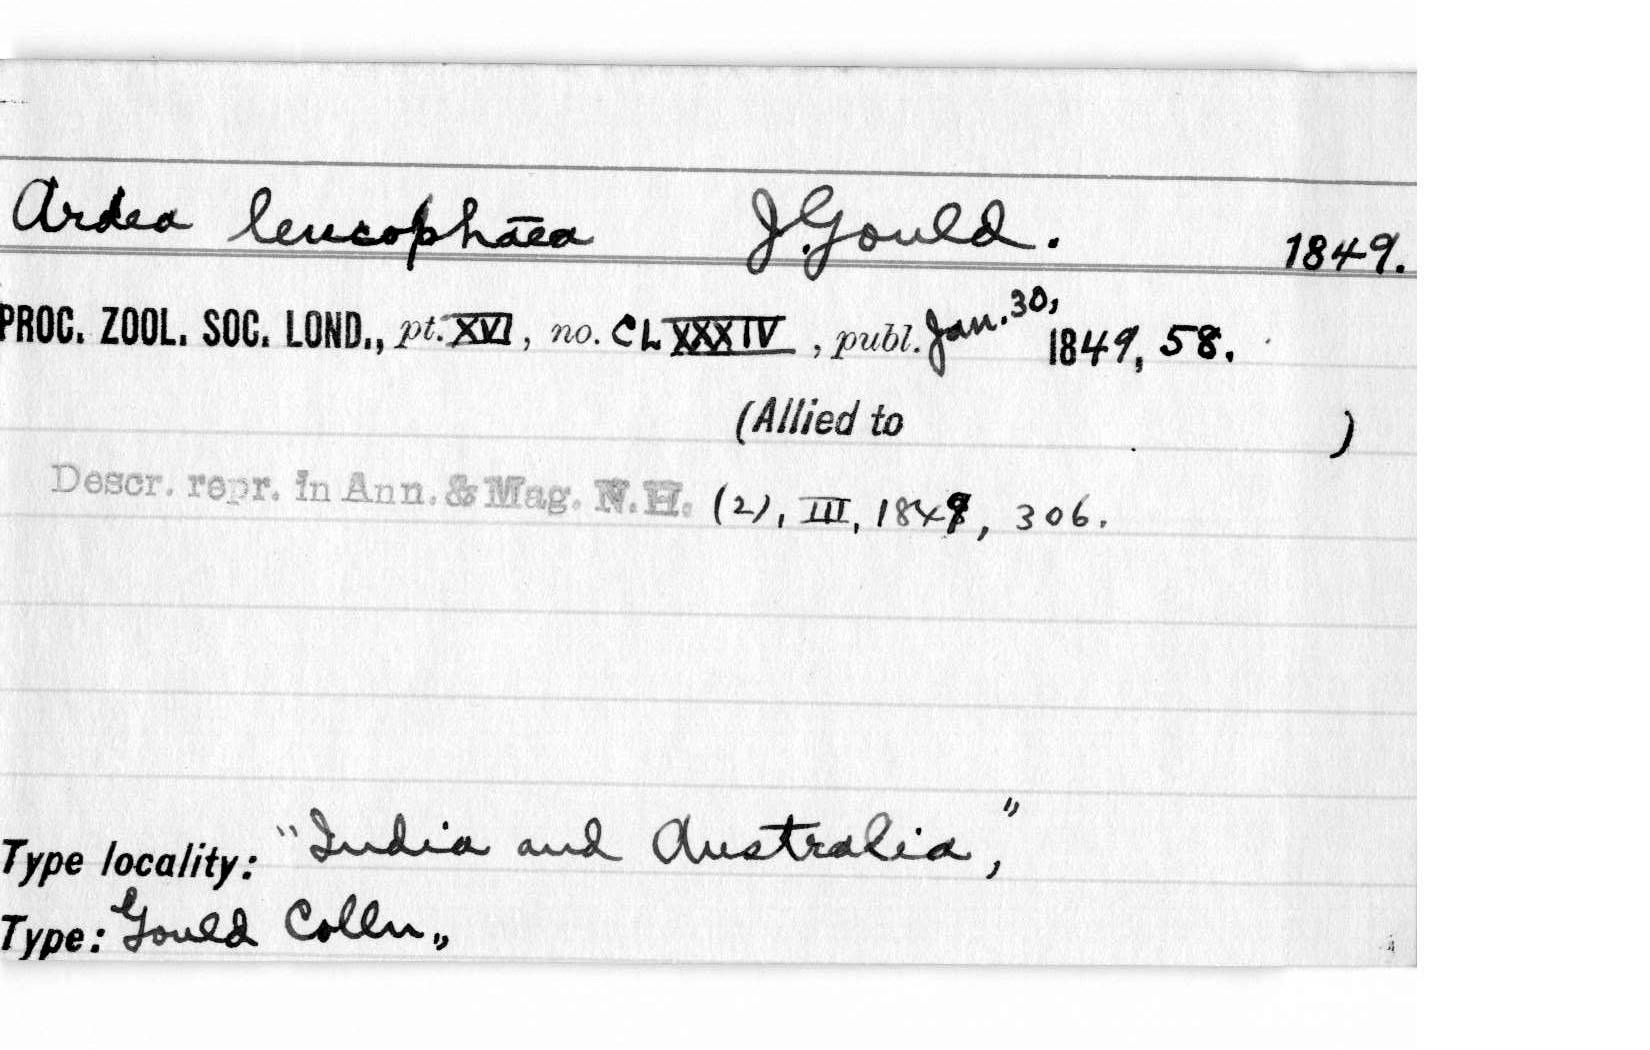 Ardea leucophæa J. Gould. 1849.
PROC. ZOOL. SOC. LOND., pt. XVI, no. CLXXXIV, publ. Jan. 30, 1849, 58.
(Allied to )
Descr. repr. in Ann. & Mag. N.H. (2), III, 1849, 306.
Type locality: "India and Australia,"
Type: Gould Colln.,